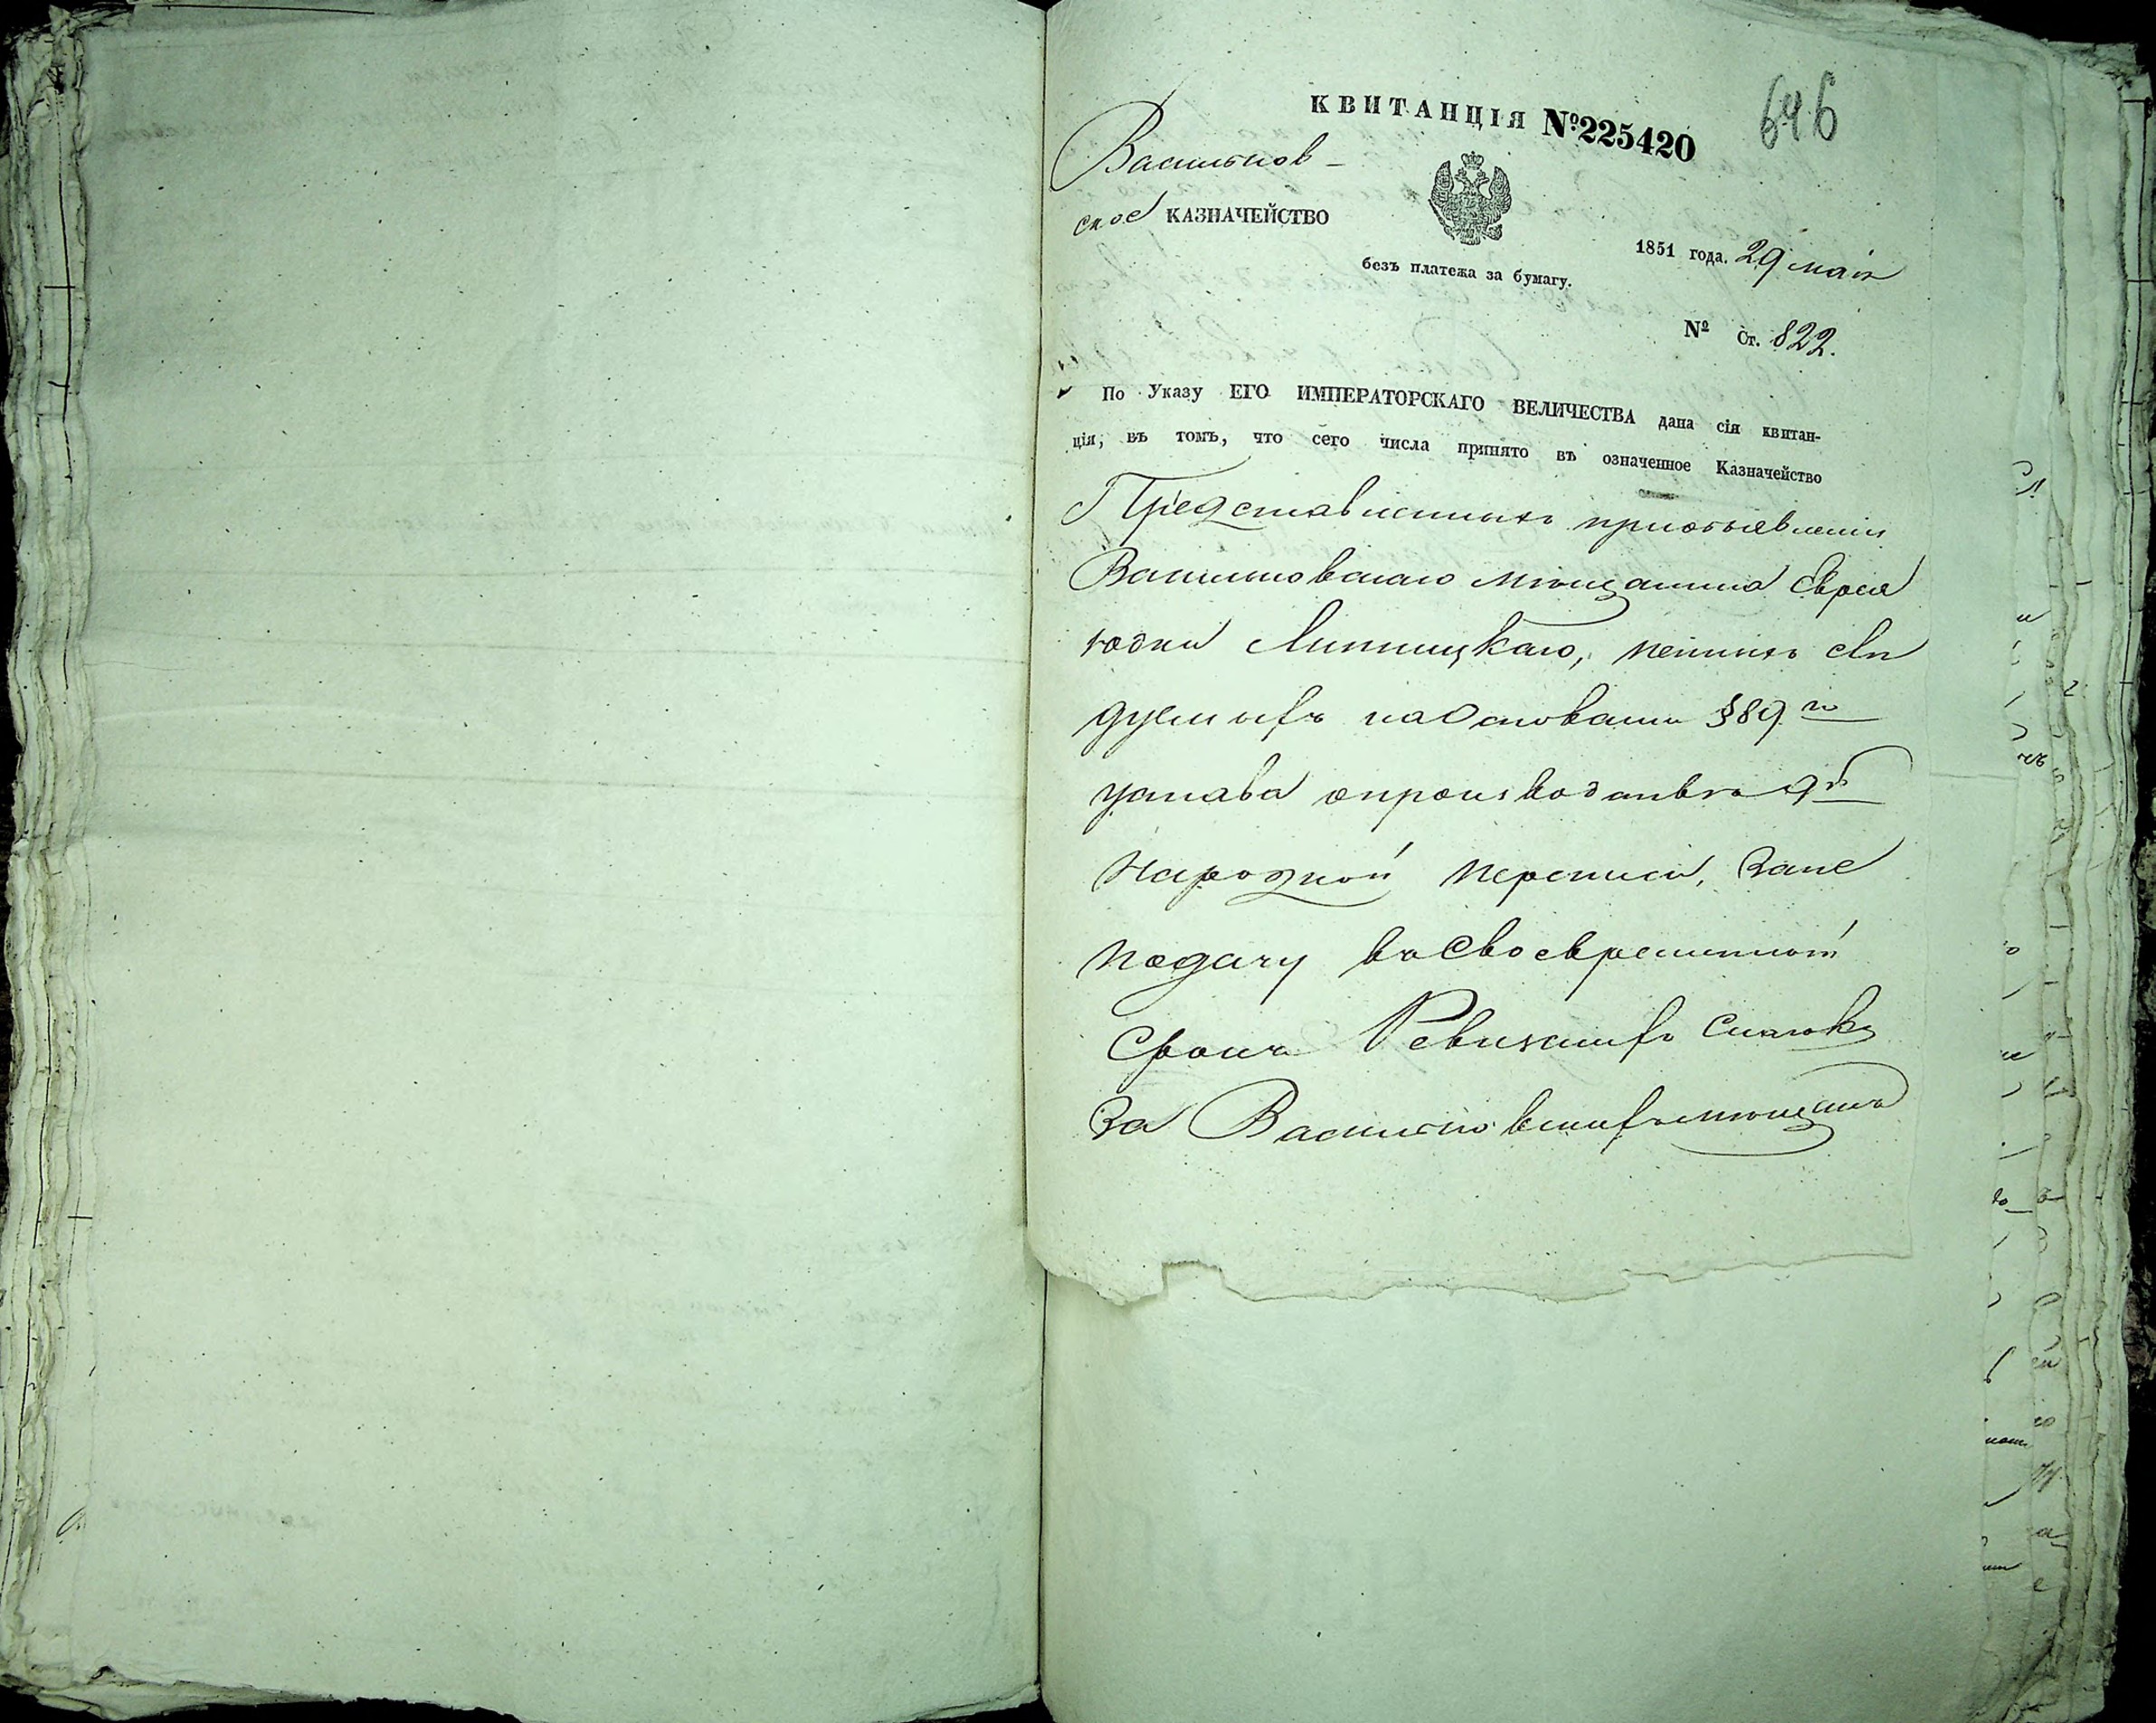 КВИТАНЦІЯ №225420
646
Васильков-
ское КАЗНАЧЕЙСТВО
безъ платежа за бумагу.
1851 года. 29 маія
№ Ст. 822.
По Указу ЕГО ИМПЕРАТОРСКАГО ВЕЛИЧЕСТВА дана сія квитан-
ція, въ томъ, что сего числа принято въ означенное Казначейство
Представленныхъ приобъявленіи
Васильковскаго мѣщанина Еврея
Юдки Липницкаго, пенныхъ слѣ
дуемыхъ наОсновании §89го
устава опроизводствѣ 9й
Народной переписи, Зане
подачу воСвоевременной
Срокъ Ревизскихъ Сказокъ
За Васильковскихъ мѣщанъ